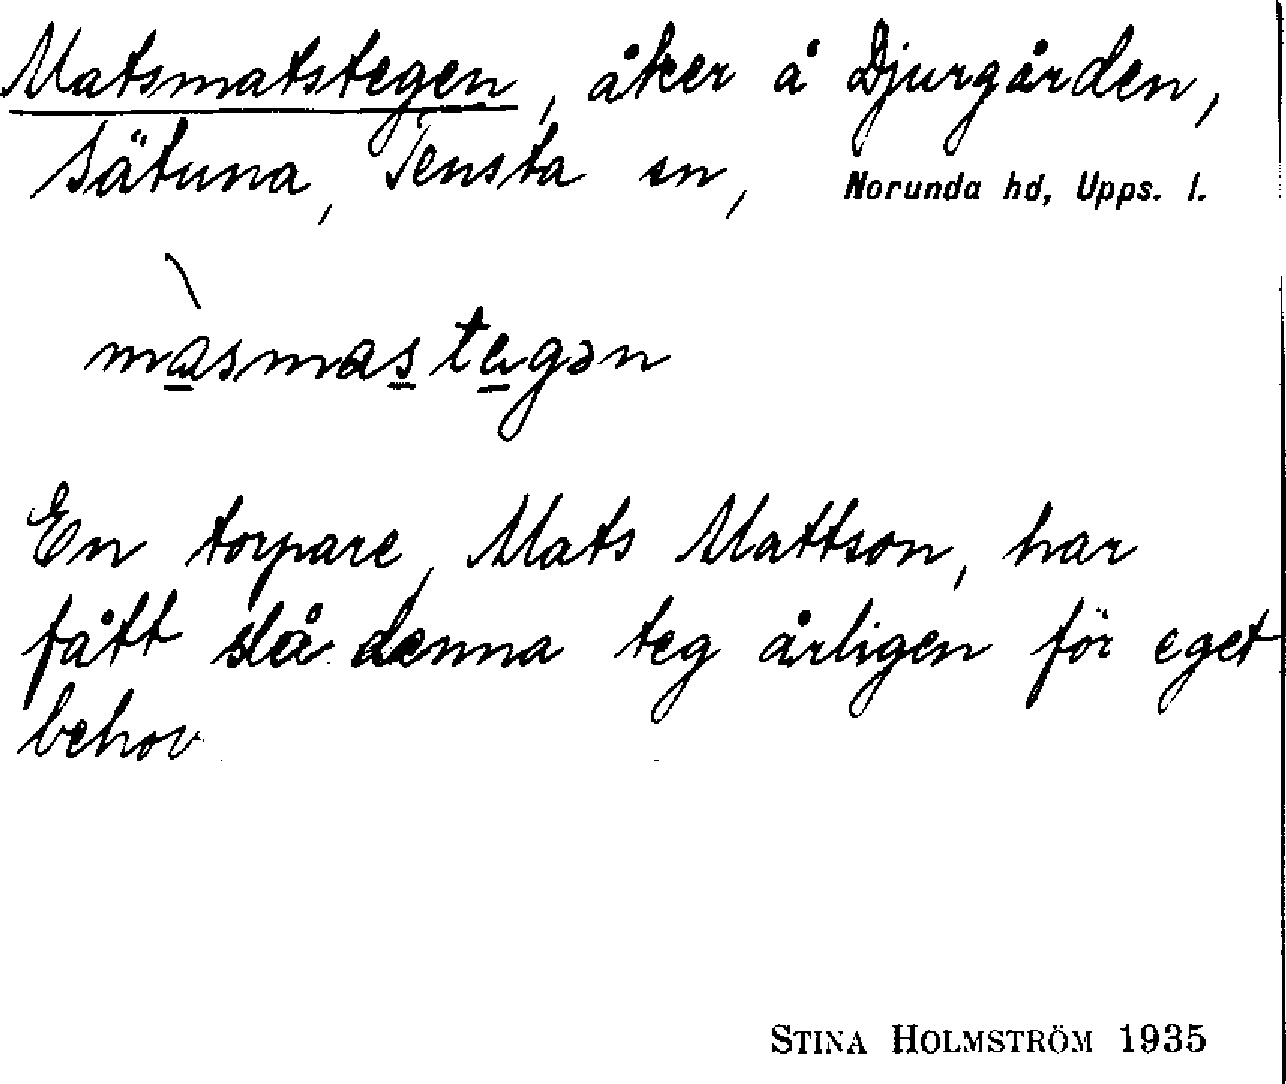 Matsmatstegen, åker å Djurgården,
Sätuna, Tensta sn, Norunda hd, Upps. l.
màsmastegən
En torpare, Mats Mattson, har
fått slå denna teg årligen för eget
behov.
STINA HOLMSTRÖM 1935